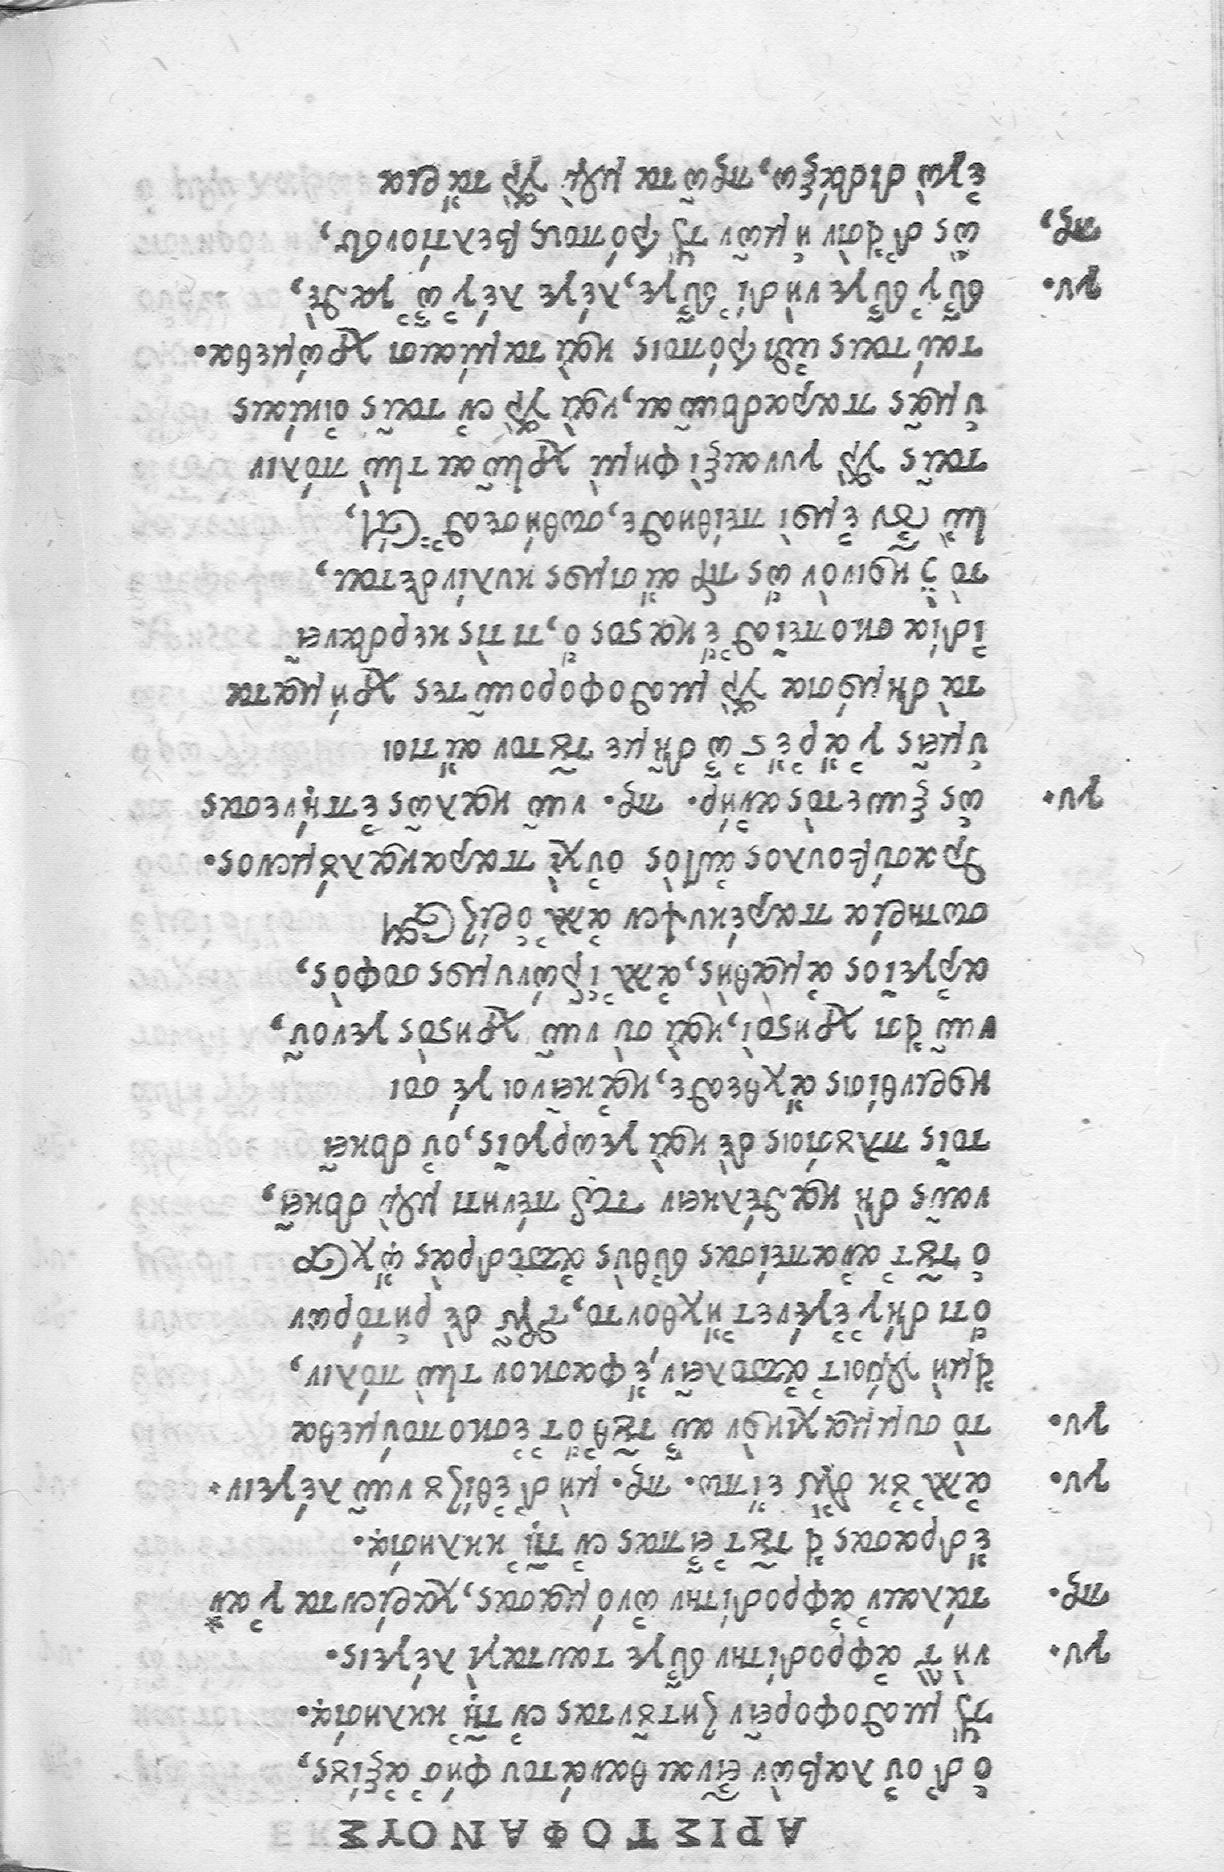 ΑΡΙΣΤΟΦΑΝΟΥΣ
ὁ δ' οὐ λαβὼν εἶναι θανάτου φήσ' ἀξίους,
τοὺς μισθοφορεῖν ζητοῦντας ἐν τῇ 'κκλησίᾳ.
γυ. νὴ τὴν ἀφροδίτην εὖγε ταυταγὶ λέγεις.
πρ. τάλαιν' ἀφροδίτην ὠνόμασας, χαρίεντα γ' ἂν
ἔδρασας εἰ τοῦτ' εἶπας ἐν τῇ 'κκλησίᾳ.
γυ. ἀλλ' οὐκ ἂν εἴπω. πρ. μὴ δ' ἐθίζου νῦν λέγειν.
γυ. τὸ συμμαχικὸν αὖ τοῦθ' ὅτ' ἐσκοπούμεθα
εἰ μὴ γένοιτ' ἀπολεῖν, ἔφασκον τὴν πόλιν,
ὅτι δή γ' ἐγένετ' ἤχθοντο, τῶν δὲ ῥητόρων
ὁ τοῦτ' ἀναπείσας εὐθὺς ἀποδρὰς ᾤχετο
ναῦς δὴ καθέλκειν τῷ πένητι μὲν δοκεῖ,
τοῖς πλουσίοις δὲ καὶ γεωργοῖς, οὐ δοκεῖ
κορινθίοις ἄχθεσθε, κἀκεῖνοι γέ σοι
νῦν εἰσι χρηστοὶ, καὶ σὺ νῦν χρηστὸς γενοῦ,
ἀργεῖος ἀμαθὴς, ἀλλ' ἱερώνυμος σοφὸς,
σωτηρία παρέκυψεν ἀλλ' ὀρείζεται
θρασύβουλος αὐτὸς οὐχὶ παρακαλούμενος.
γυ. ὡς ξυνετὸς ἀνήρ. πρ. νῦν καλῶς ἐπῄνεσας
ὑμεῖς γ' ἄρ ἔστ' ὦ δῆμε τούτου αἴτιοι
τὰ δημόσια γὰρ μισθοφοροῦντες χρήματα
ἰδίᾳ σκοπεῖσθ' ἕκαστος ὅ,τι τὶς κερδανεῖ
τὸ δὲ κοινὸν ὡς περ αἴσιμος κυλίνδεται,
ἢν οὖν ἐμοὶ πείθησθε, σωθήσεσθ' ἔτι,
ταῖς γὰρ γυναιξὶ φημὶ χρῆναι τὴν πόλιν
ὑμᾶς παραδοῦναι, καὶ γὰρ ἐν ταῖς οἰκίαις
ταύταις ἐπιτρόποις καὶ ταμίαισι χρώμεθα.
γυ. εὖ γ' εὖγε νὴ δί' εὖγε, λέγε λέγ' ὦ 'γαθὲ,
πρ. ὡς δ' εἰσὶν ἡμῶν τοὺς τρόπους βελτίονες,
ἐγὼ διδάξω, πρῶτα μὲν γὰρ τἄρια